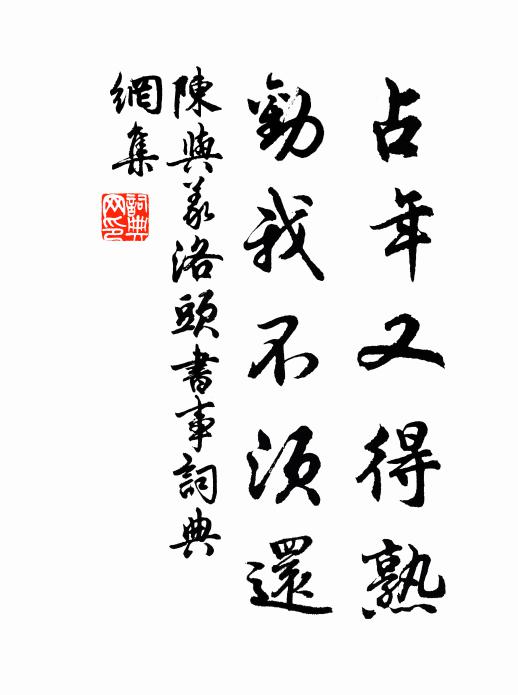 占年又得熟
勸我不須還
陳與義洛頭書事詞典
網集
詞典網印